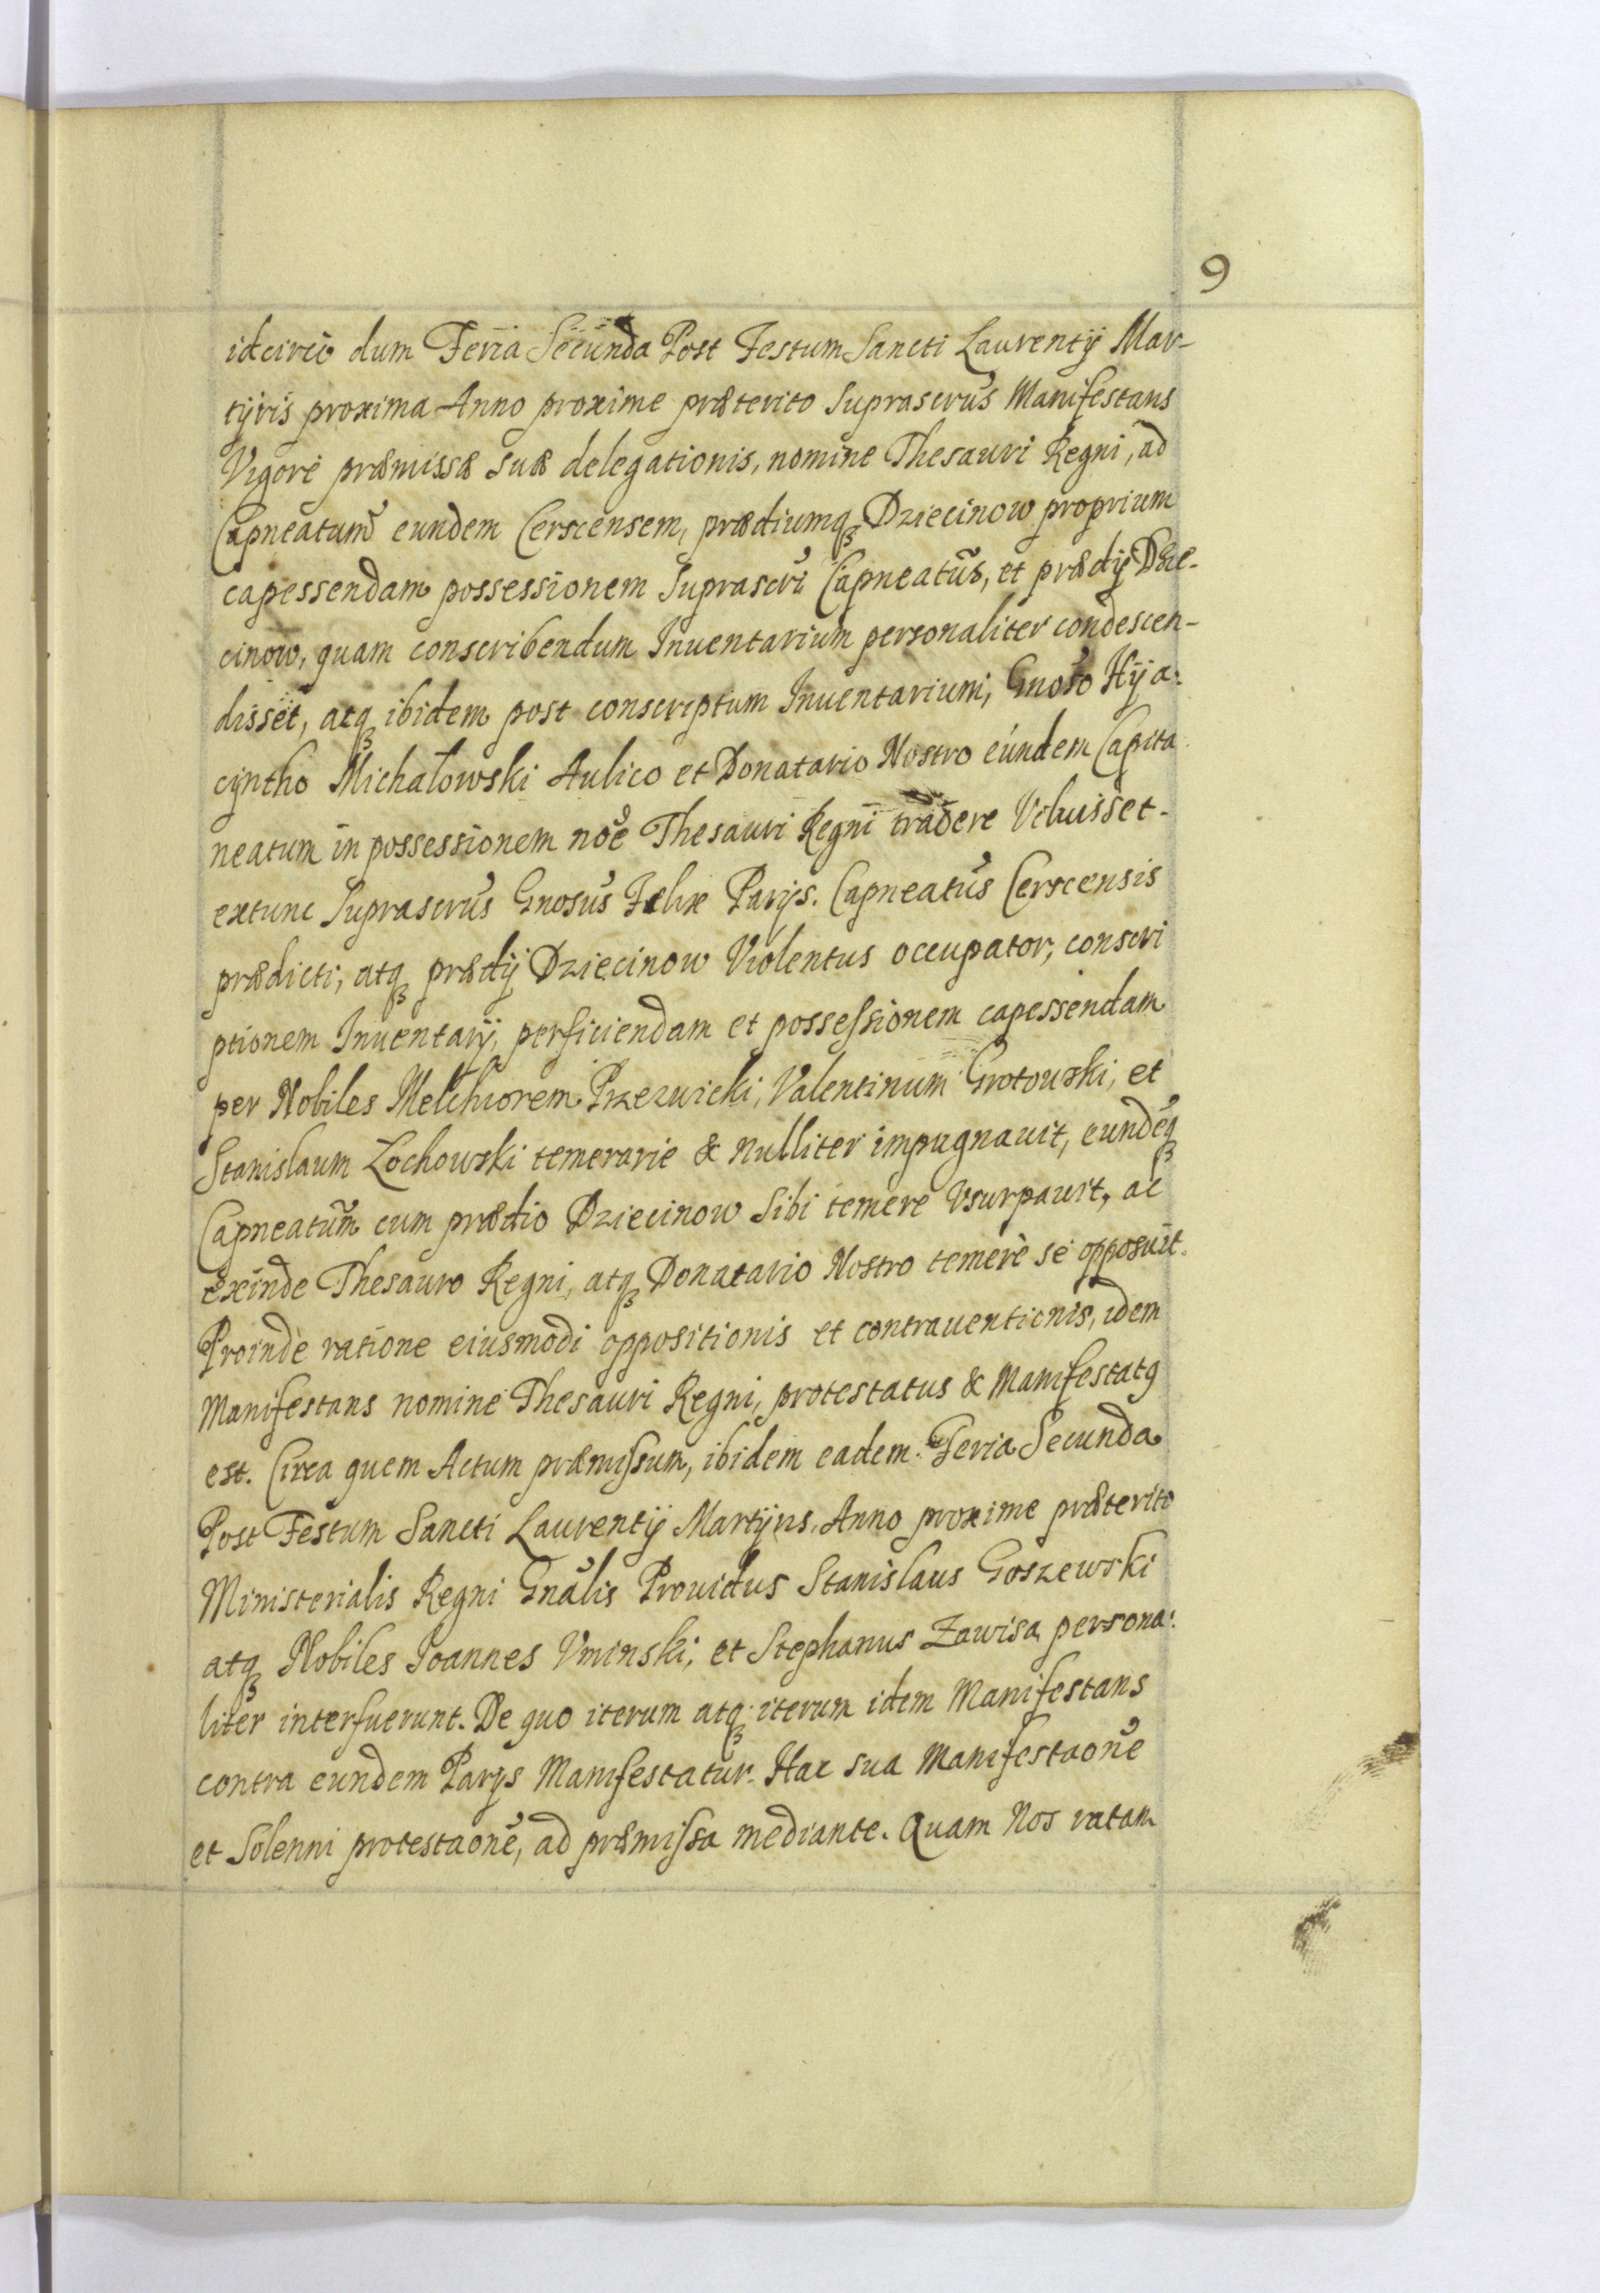 9
idcirco dum Feria Secunda Post Festum Sancti Laurentij Mar-
tyris proxima Anno proxime præterito Suprascrus Manifestans
Vigore præmissæ Suæ delegationis, nomine Thesauri Regni, ad
Capneatum eundem Cerscensem, prædiumq Dziecinow proprium
capessendam possessionem Suprascri Capneatus, et prædij Dzie-
cinow, quam conscribendum Inuentarium personaliter condescen-
disset, atq ibidem post conscriptum Inuentarium, Gnoso Hija:
cyntho Michałowski Aulico et Donatario Nostro eundem Capita
neatum in possessionem noe Thesauri Regni tradere Voluisset.
extunc Suprascrus Gnosus Felix Parys. Capneatus Cerscensis
prædicti, atq prædij Dziecinow Violentus occupator, conscri
ptionem Inuentarij, perficiendam et possessionem capessendam
per Nobiles Melchiorem Przezwicki, Valentinum Grotowski, et
Stanislaum Lochowski temerarie & nulliter impugnauit, eundeq
Capneatum cum prædio Dziecinow Sibi temere Vsurpauit, ac
exinde Thesauro Regni, atq Donatario Nostro temere se opposuit.
Proinde ratione eiusmodi oppositionis et contrauentionis, idem
Manifestans nomine Thesauri Regni, protestatus & Manifestatq
est. Circa quem Actum præmissum, ibidem eadem Feria Secunda
Post Festum Sancti Laurentij Martyris, Anno proxime præterito
Ministerialis Regni Gnalis Prouidus Stanislaus Goszewski
atq Nobiles Joannes Vminski, et Stephanus Zawisa persona:
liter interfuerunt. De quo iterum atq iterum idem Manifestans
contra eundem Parys Manifestatur. Hac sua Manifestaone
et Solenni protestaone, ad præmissa mediante. Quam Nos ratam